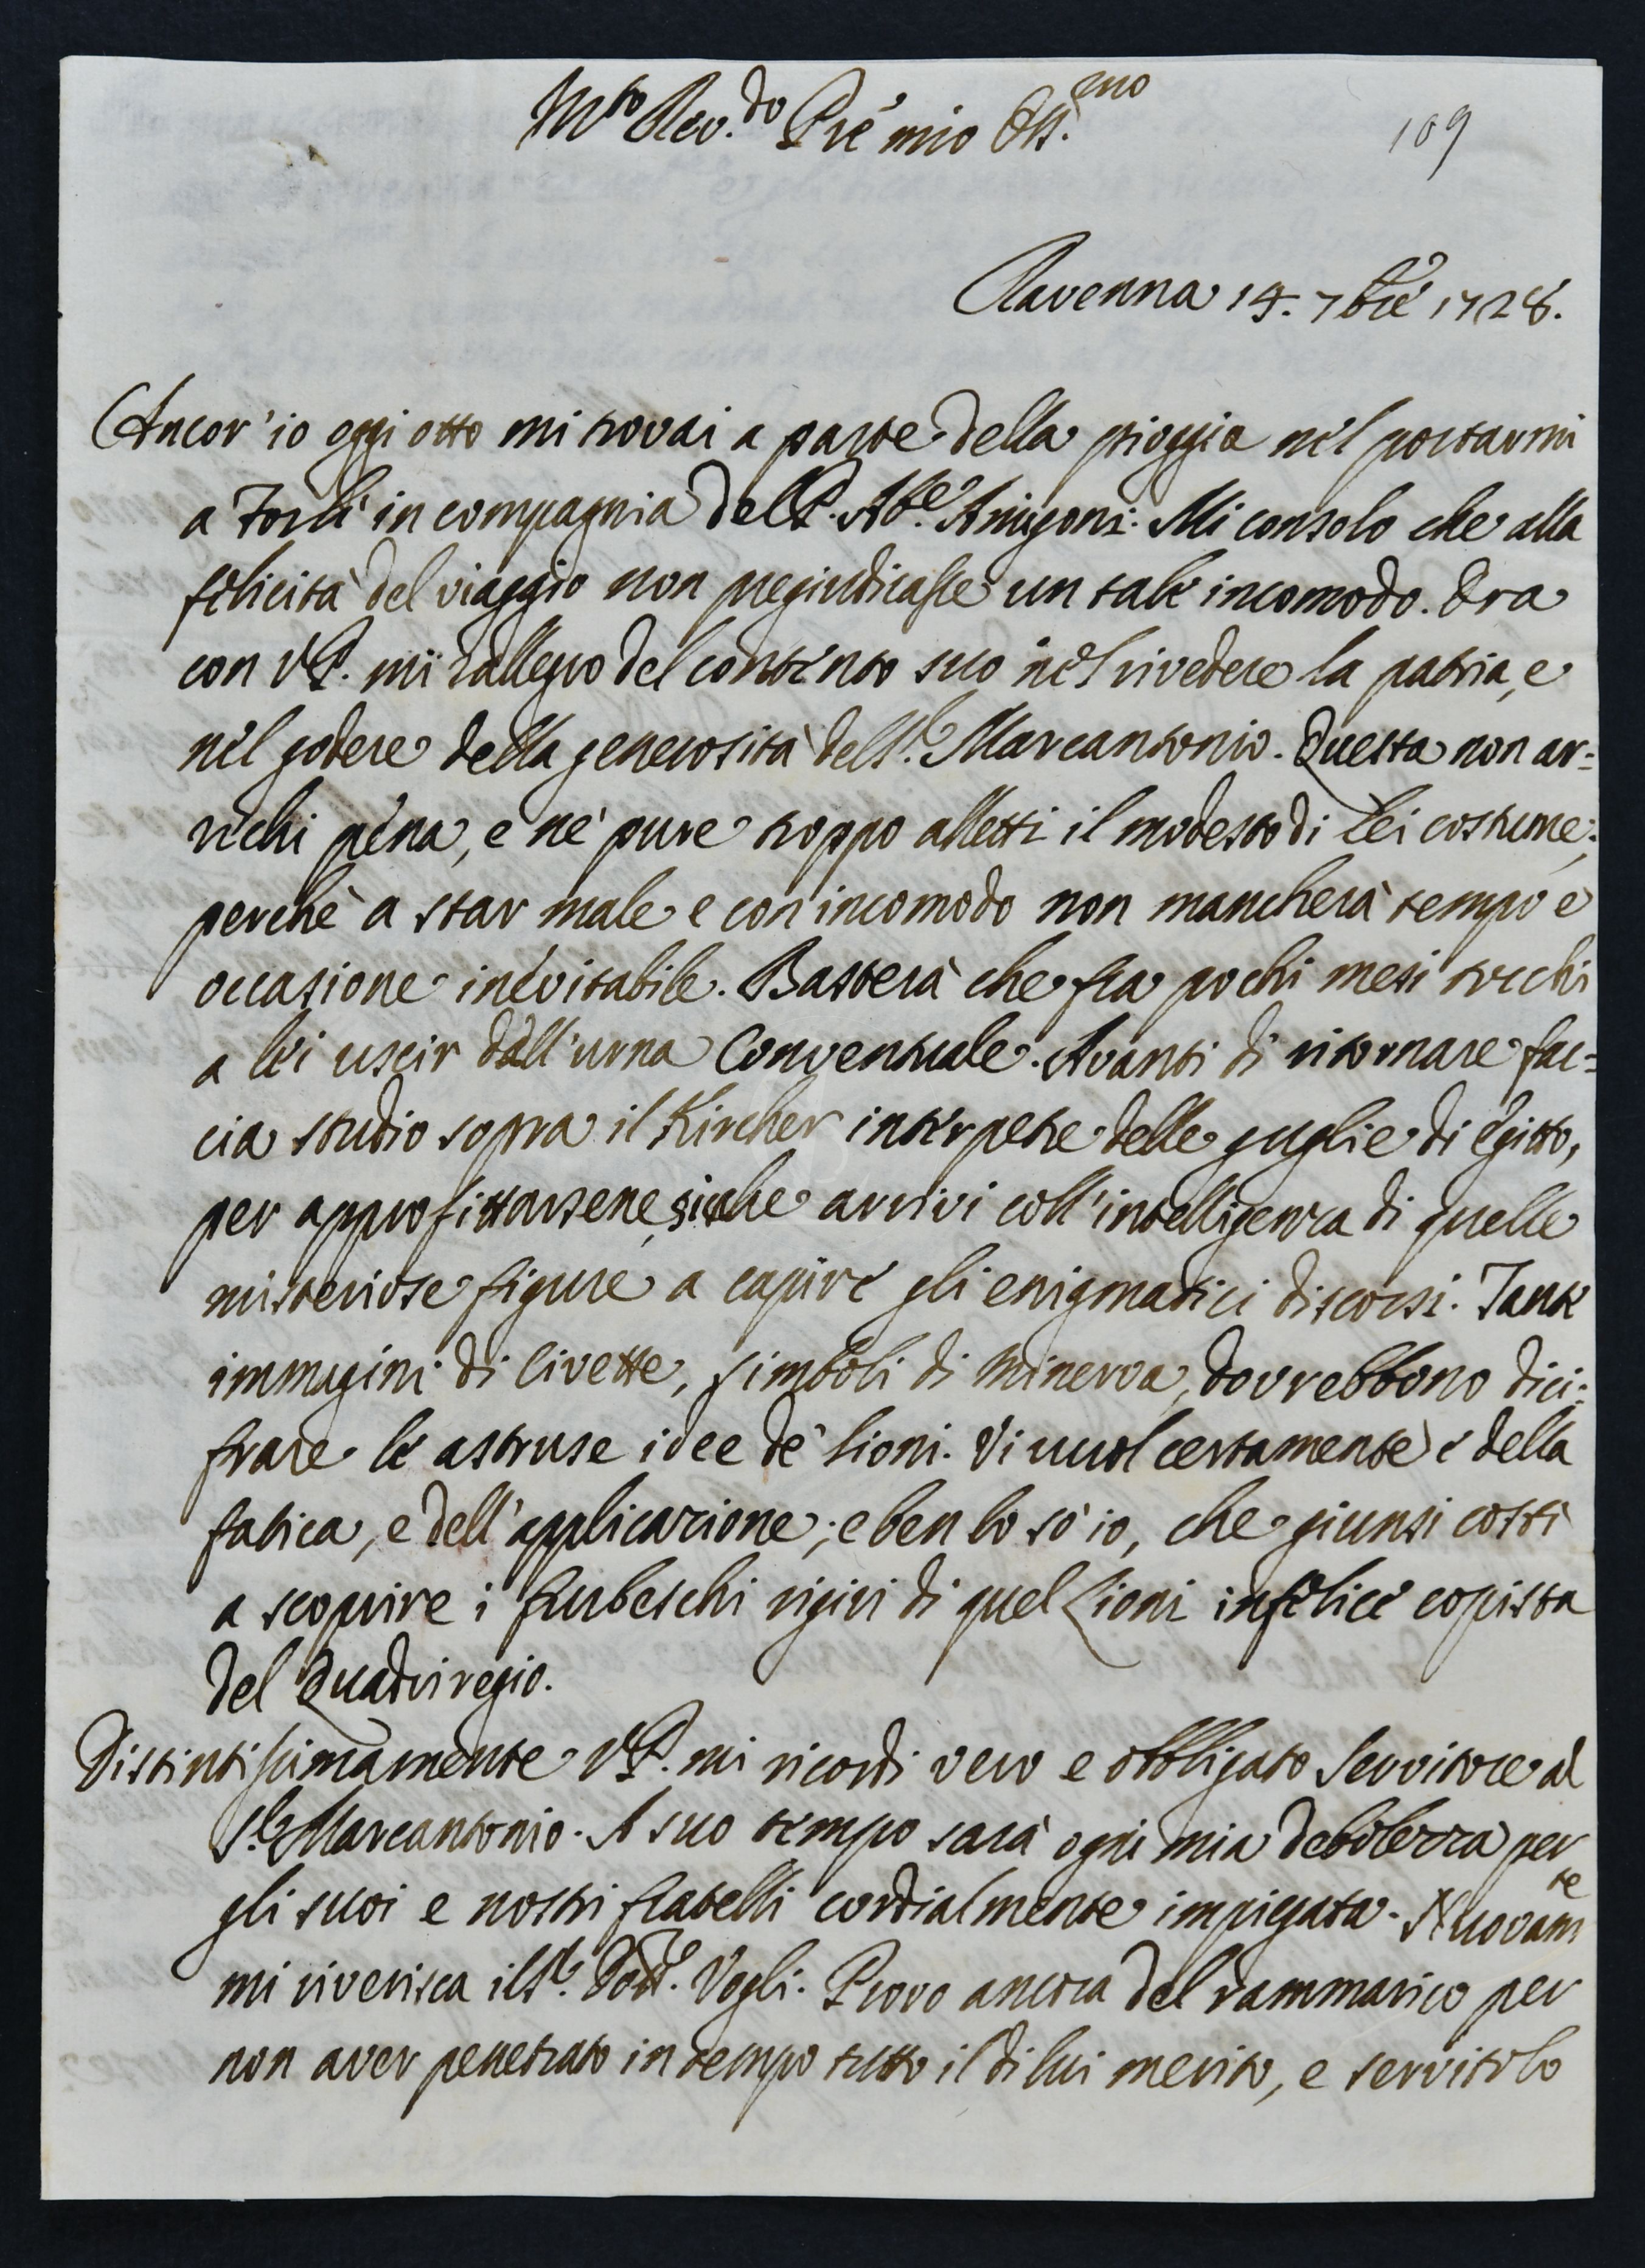 Mto Rev.do Pre mio Oss.mo
109
Ravenna 14. 7bre 1728.
Ancor' io oggi otto mi trovai a parte della pioggia nel portarmi
a Forlì in compagnia del P. Abe. Amigoni. Mi consolo che alla
felicità del viaggio non pregiudicasse un tale incomodo. Ora
con VP. mi rallegro del contento suo nel rivedere la patria, e
nel godere della generosità del Sr. Marcantonio. Questa non ar=
rechi pena, e nè pure troppo alletti il modesto di Lei costume;
perchè a star male e con incomodo non mancherà tempo e
occasione inevitabile. Basterà che fra pochi mesi tocchi
a lei uscir dall'urna Conventuale. Avanti di ritornare fac=
cia studio sopra il Kircher interprete delle guglie di Egitto,
per approfittarsene, siche arrivi coll'intelligenza di quelle
misteriose figure a capire gli enigmatici discorsi. Tante
immagini di Civette, simboli di Minerva, dovrebbono dici=
frare le astruse idee de' Lioni. Vi vuol certamente e della
fatica, e dell'applicazione; e ben lo sò io, che giunsi costì
a scoprire i furbeschi rigiri di quel Lioni infelice copista
del Quadriregio.
Distintissimamente VP. mi ricordi vero e obbligato Servitore al
Sr. Marcantonio. A suo tempo sarà ogni mia debolezza per
gli suoi e nostri fratelli cordialmente impiegata. Nuovamte
mi riverisca il Sr. Dott. Vogli. Provo ancora del rammarico per
non aver penetrato in tempo tutto il di lui merito, e servitolo